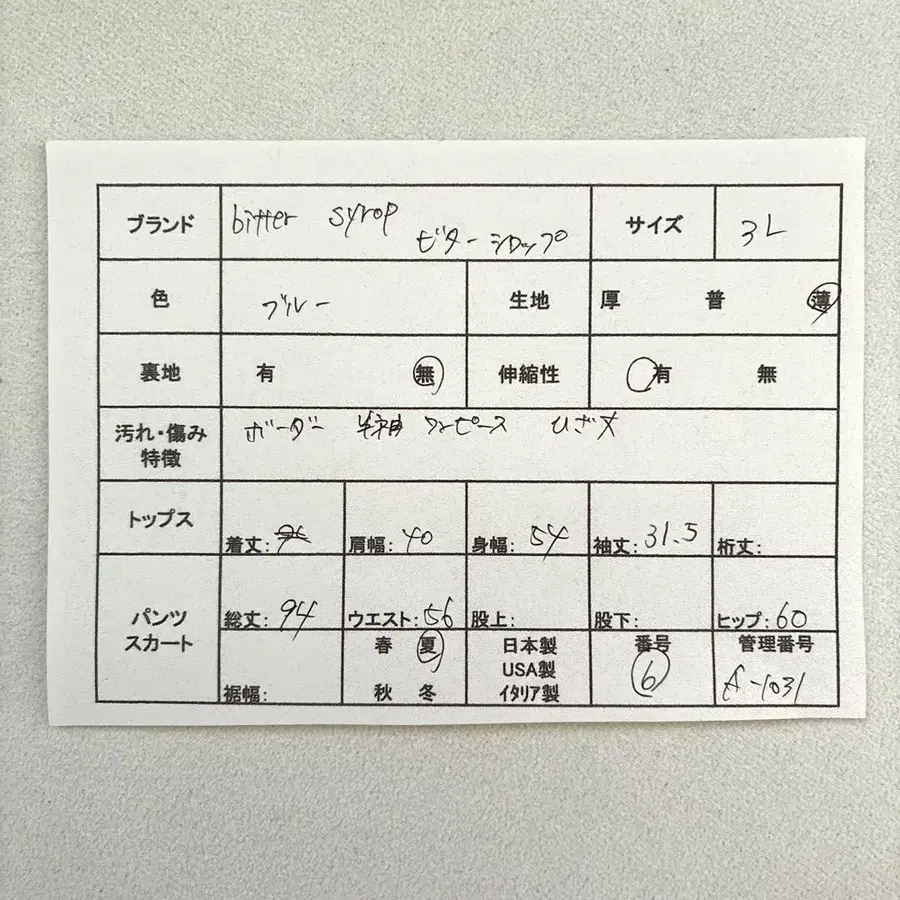 ブランド bitter syrop ビターシロップ サイズ 3L
色 ブルー 生地 厚 普 薄
裏地 有 無 伸縮性 有 無
汚れ・傷み
特徴 ボーダー 半袖 ワンピース ひざ丈
トップス 着丈: 肩幅: 40 身幅: 54 袖丈: 31.5 裄丈:
パンツ
スカート 総丈: 94 ウエスト: 56 股上: 股下: ヒップ: 60
裾幅: 春 夏
秋 冬
日本製
USA製
イタリア製
番号
6
管理番号
A-1031